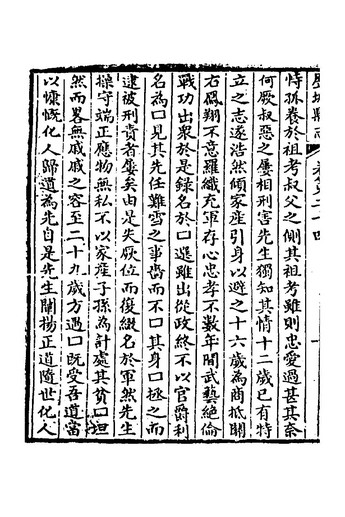 恃孤養於祖考叔父之側其祖考雖則忠愛過甚其奈
何厥叔惡之屢相刑害先生獨知其情十二歲已有特
立之志遂浩然傾家產引身以避之十六歲為商抵關
右偶翔不意羅織充軍存心忠孝不數年閒武藝絕倫
戰功出眾於是錄名於口選雖出從政終不以官爵利
名為口見其先任難雪之事啇而不口其身口拯之而
逮被刑責者屢矣由是失厥位而復綴名於軍然先生
操守端正應物無私不以家産子孫為計處其貧口坦
然而畧無戚戚之容至二十九歲方遇口既受吾道當
以慷慨化人歸道為先自是先生闡揚正道隨世化人